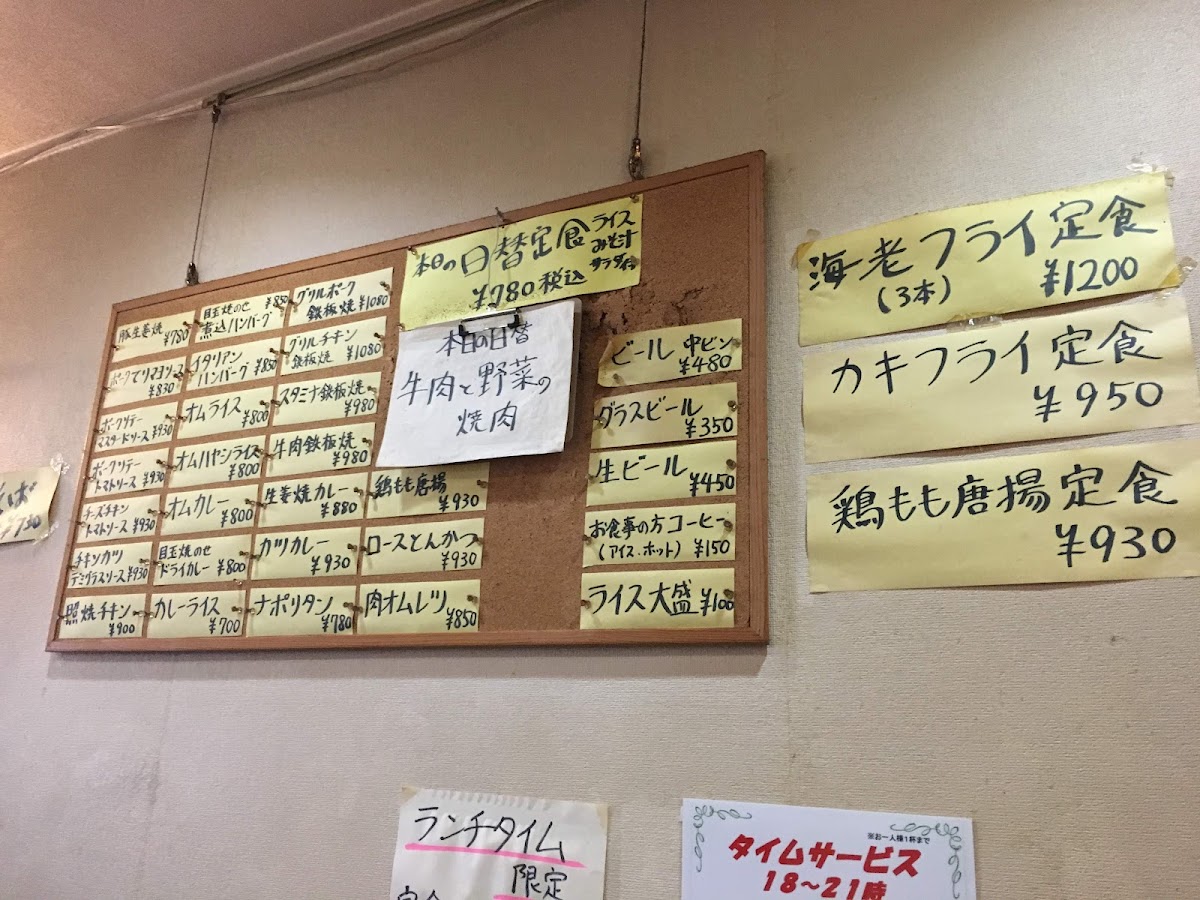 豚生姜焼
¥780
ポークてりマヨソース
¥830
ポークソテー
マスタードソース ¥930
ポークソテー
トマトソース ¥930
チーズチキン
トマトソース ¥930
チキンカツ
デミグラスソース ¥930
照焼チキン
¥900
目玉焼のせ ¥850
煮込ハンバーグ
イタリアン
ハンバーグ ¥850
オムライス
¥800
オムハヤシライス
¥800
オムカレー
¥800
目玉焼のせ
ドライカレー ¥800
カレーライス
¥700
グリルポーク
鉄板焼 ¥1080
グリルチキン
鉄板焼 ¥1080
スタミナ鉄板焼
¥980
牛肉鉄板焼
¥980
生姜焼カレー
¥880
カツカレー
¥930
ナポリタン
¥780
本日の日替定食
ライス
みそ汁
サラダ付
¥780税込
本日の日替
牛肉と野菜の
焼肉
鶏もも唐揚
¥930
ロースとんかつ
¥930
肉オムレツ
¥850
ビール 中ビン
¥480
グラスビール
¥350
生ビール
¥450
お食事の方コーヒー
(アイス.ホット) ¥150
ライス大盛 ¥100
海老フライ定食
(3本) ¥1200
カキフライ定食
¥950
鶏もも唐揚定食
¥930
¥730
ランチタイム
限定
※お一人様1杯まで
タイムサービス
18〜21時